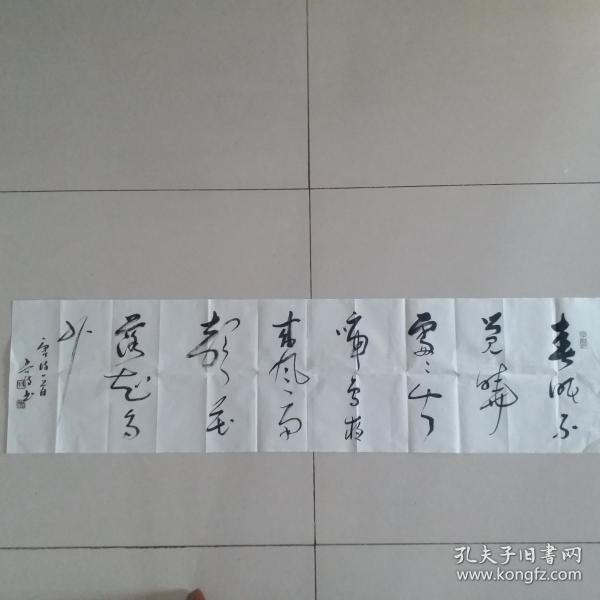 春眠不
觉晓
处处闻
啼鸟夜
来风雨
声花
落知多
少
唐诗一首
孔夫子旧书网
www.kongfz.com